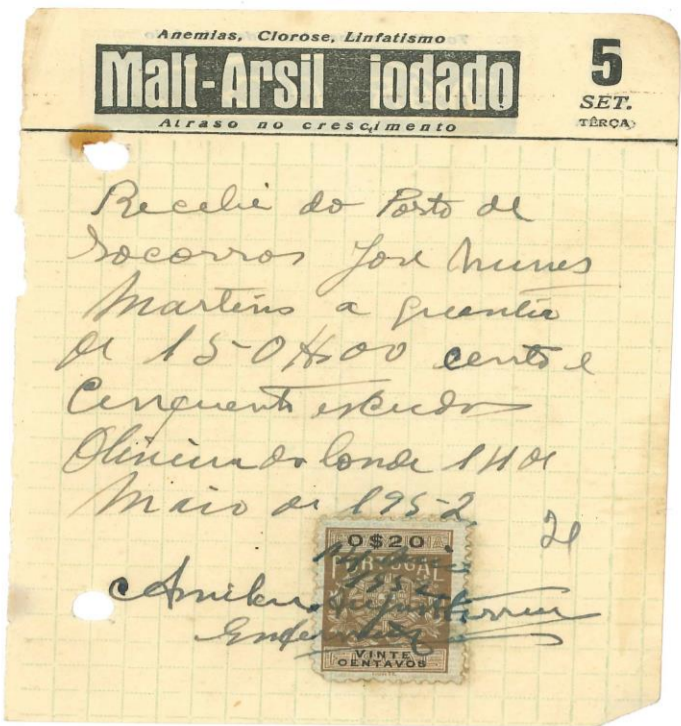 Anemias, Clorose, Linfatismo
Malt-Arsil iodado
Atraso no crescimento
5
SET.
TÊRÇA
Recebi do Posto de
Socorros José Nunes
Martins a quantia
de 150$00 cento e
Cinquenta escudos
Oliveira do Conde 14 de
Maio de 1952
0$20
PORTUGAL
1952
Augusto
Enfermeiro
VINTE
CENTAVOS